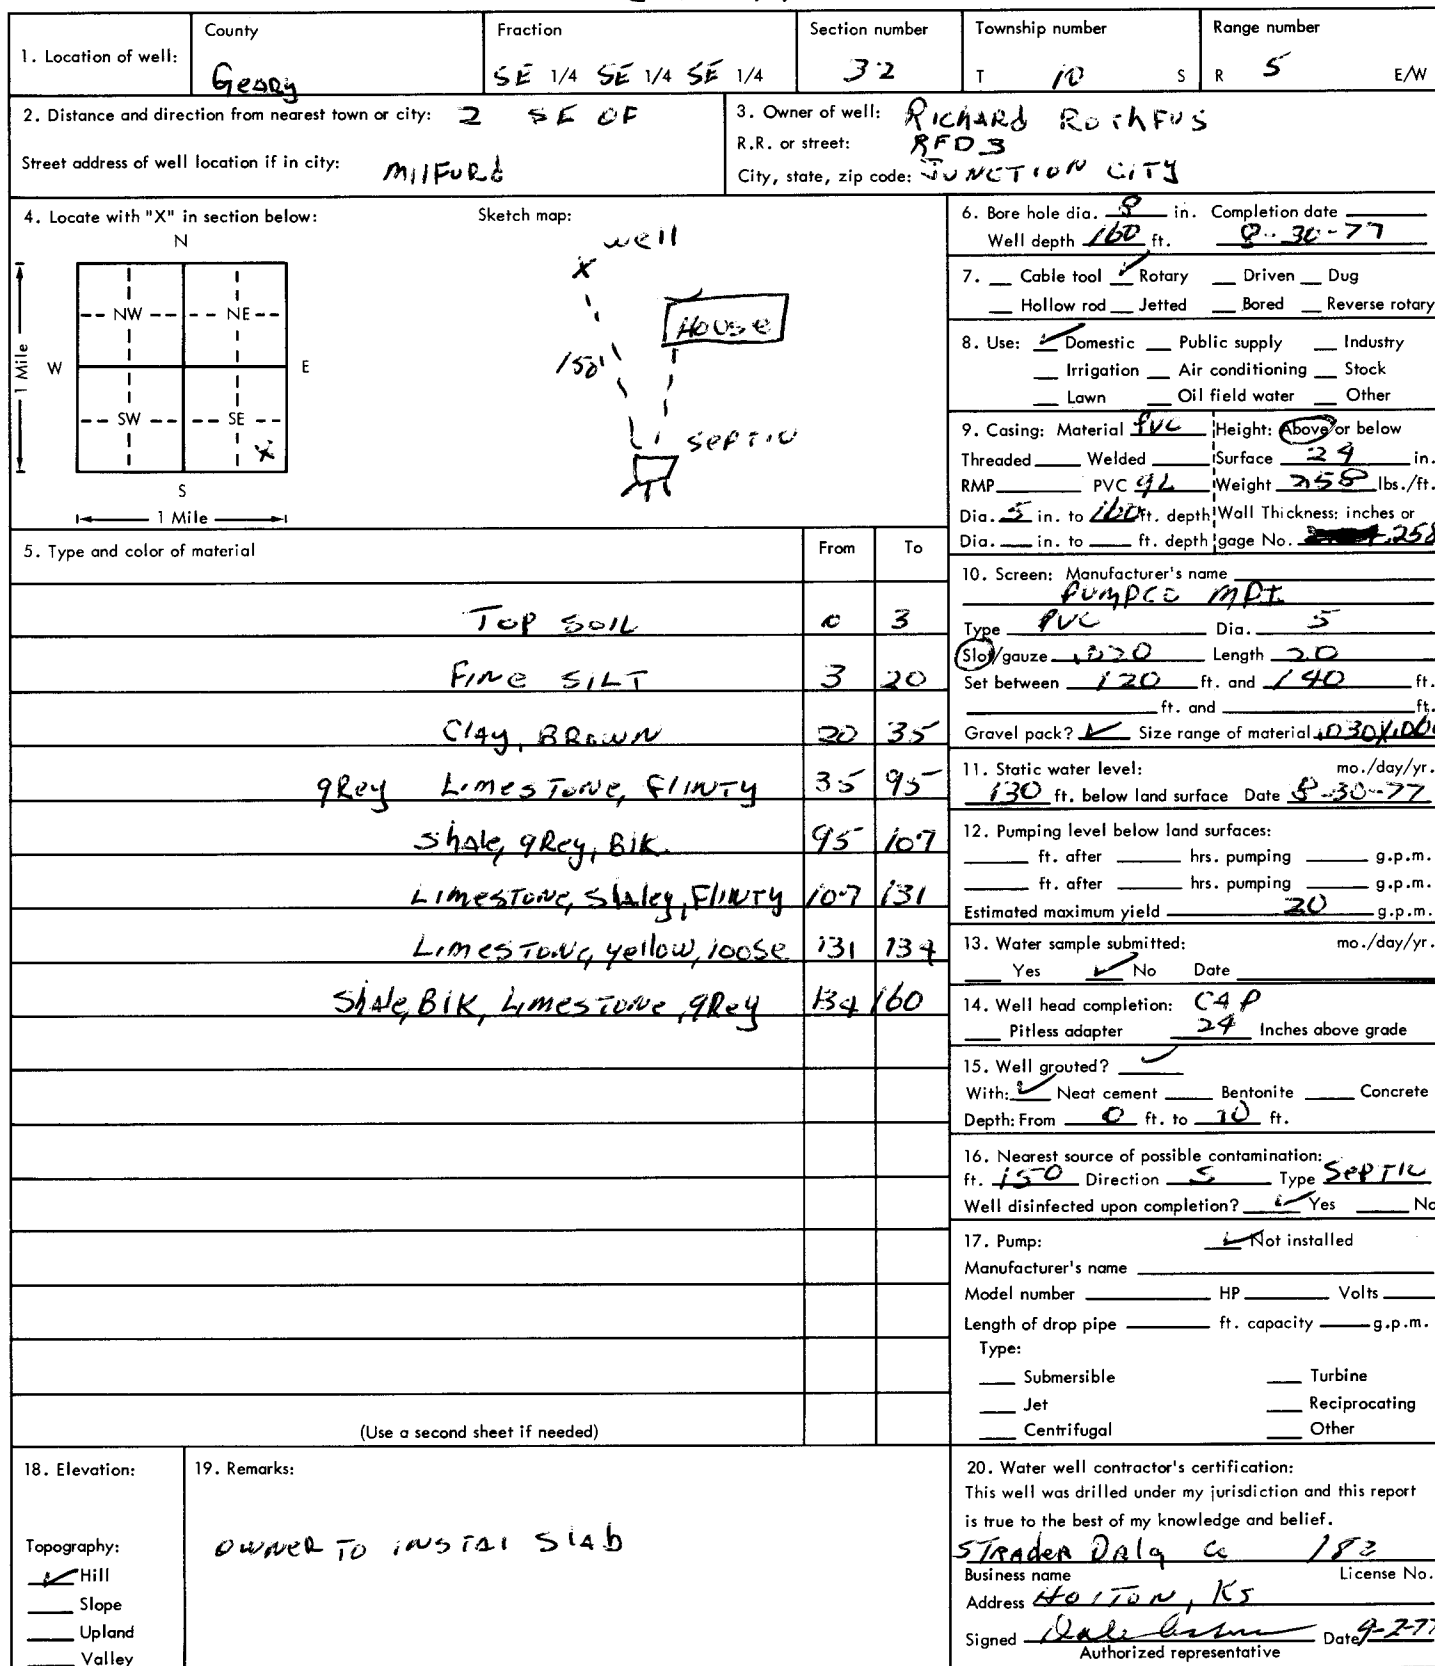 1. Location of well:
County
Geary
Fraction
SE 1/4 SE 1/4 SE 1/4
Section number
32
Township number
T 10 S
Range number
R 5 E/W
2. Distance and direction from nearest town or city: 2 SE OF
Street address of well location if in city: Milford
3. Owner of well: Richard Rothfus
R.R. or street: RFD 3
City, state, zip code: Junction City
4. Locate with "X" in section below:
N
NW NE
W E
SW SE
X
S
1 Mile
1 Mile
Sketch map:
well
X
House
150'
Septic
5. Type and color of material From To
Top Soil 0 3
Fine Silt 3 20
Clay, Brown 20 35
grey Limestone, Flinty 35 95
Shale, grey, Blk. 95 107
Limestone, Shaley, Flinty 107 131
Limestone, yellow, loose 131 134
Shale, Blk, Limestone, grey 134 160
(Use a second sheet if needed)
6. Bore hole dia. 8 in. Completion date
Well depth 160 ft. 8-30-77
7. Cable tool ✓ Rotary Driven Dug
Hollow rod Jetted Bored Reverse rotary
8. Use: ✓ Domestic Public supply Industry
Irrigation Air conditioning Stock
Lawn Oil field water Other
9. Casing: Material PVC Height: Above or below
Threaded Welded Surface 24 in.
RMP PVC GL Weight 258 lbs./ft.
Dia. 5 in. to 160 ft. depth Wall Thickness: inches or
Dia. in. to ft. depth gage No. .258
10. Screen: Manufacturer's name
Pumpco
Type PVC Dia. 5
Slot/gauze .020 Length 20
Set between 120 ft. and 140 ft.
ft. and ft.
Gravel pack? ✓ Size range of material
11. Static water level: mo./day/yr.
130 ft. below land surface Date 8-30-77
12. Pumping level below land surfaces:
ft. after hrs. pumping g.p.m.
ft. after hrs. pumping g.p.m.
Estimated maximum yield 20 g.p.m.
13. Water sample submitted: mo./day/yr.
Yes ✓ No Date
14. Well head completion: CAP
Pitless adapter 24 Inches above grade
15. Well grouted? ✓
With: ✓ Neat cement Bentonite Concrete
Depth: From 0 ft. to 10 ft.
16. Nearest source of possible contamination:
ft. 150 Direction S Type Septic
Well disinfected upon completion? ✓ Yes No
17. Pump: ✓ Not installed
Manufacturer's name
Model number HP Volts
Length of drop pipe ft. capacity g.p.m.
Type:
Submersible Turbine
Jet Reciprocating
Centrifugal Other
18. Elevation:
Topography:
✓ Hill
Slope
Upland
Valley
19. Remarks:
Owner to instal Slab
20. Water well contractor's certification:
This well was drilled under my jurisdiction and this report
is true to the best of my knowledge and belief.
Strader Drlg Co 182
Business name License No.
Address Holton, KS
Signed Dale Date 9-2-77
Authorized representative